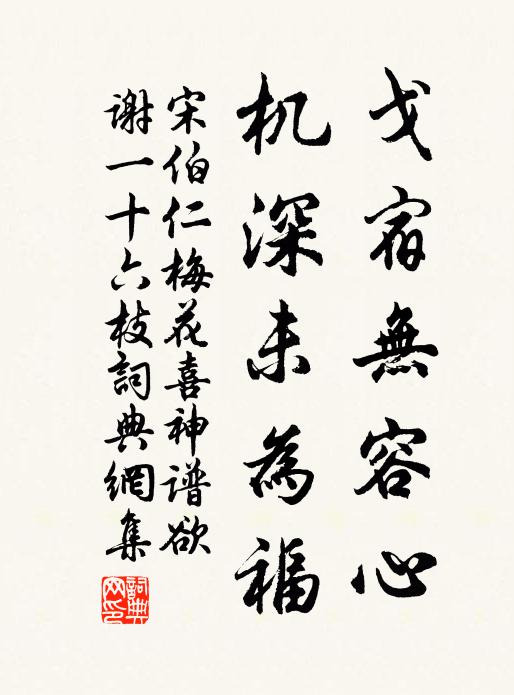 戈宿無容心
机深未為福
宋伯仁梅花喜神谱欲
謝一十六枝詞典網集
詞典網印